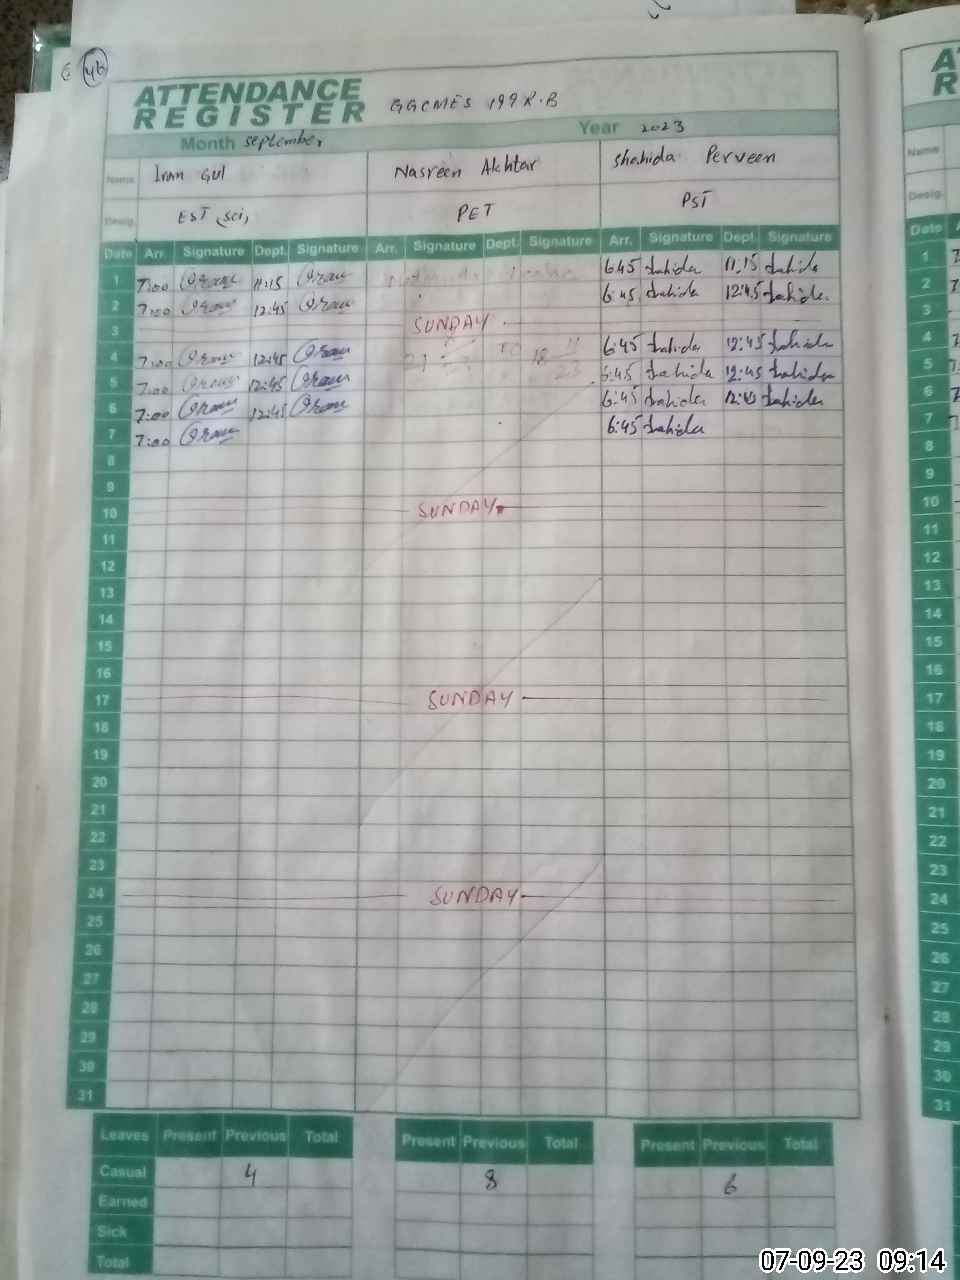 46
ATTENDANCE
REGISTER GGCMES 199 R.B
Month September Year 2023
Name Iram Gul Nasreen Akhtar Shahida Perveen
Desig. EST Sci, PET PST
Date Arr. Signature Dept. Signature Arr. Signature Dept. Signature Arr. Signature Dept. Signature
1 7:00 11:15 6:45 Shahida 11:15 Shahida
2 7:00 12:45 6:45 Shahida 12:45 Shahida
3 SUNDAY
4 7:00 12:45 6:45 Shahida 12:45 Shahida
5 7:00 12:45 6:45 Shahida 12:45 Shahida
6 7:00 12:45 6:45 Shahida 12:45 Shahida
7 7:00 6:45 Shahida
8
9
10 SUNDAY
11
12
13
14
15
16
17 SUNDAY
18
19
20
21
22
23
24 SUNDAY
25
26
27
28
29
30
31
Leaves Present Previous Total Present Previous Total Present Previous Total
Casual 4 8 6
Earned
Sick
Total
07-09-23 09:14